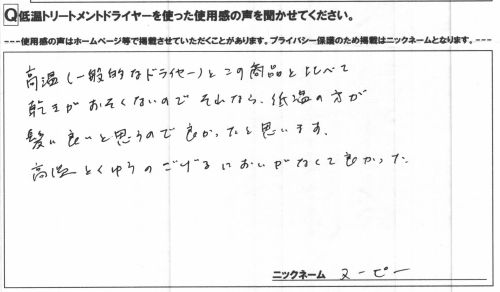 Q低温トリートメントドライヤーを使った使用感の声を聞かせてください。
---使用感の声はホームページ等で掲載させていただくことがあります。プライバシー保護のため掲載はニックネームとなります。---
高温(一般的なドライヤー)とこの商品と比べて
乾きがおそくないのでそれなら、低温の方が
髪に良いと思うので良かったと思います。
高温とくゆうのこげるにおいがなくて良かった。
ニックネーム ヌーピー